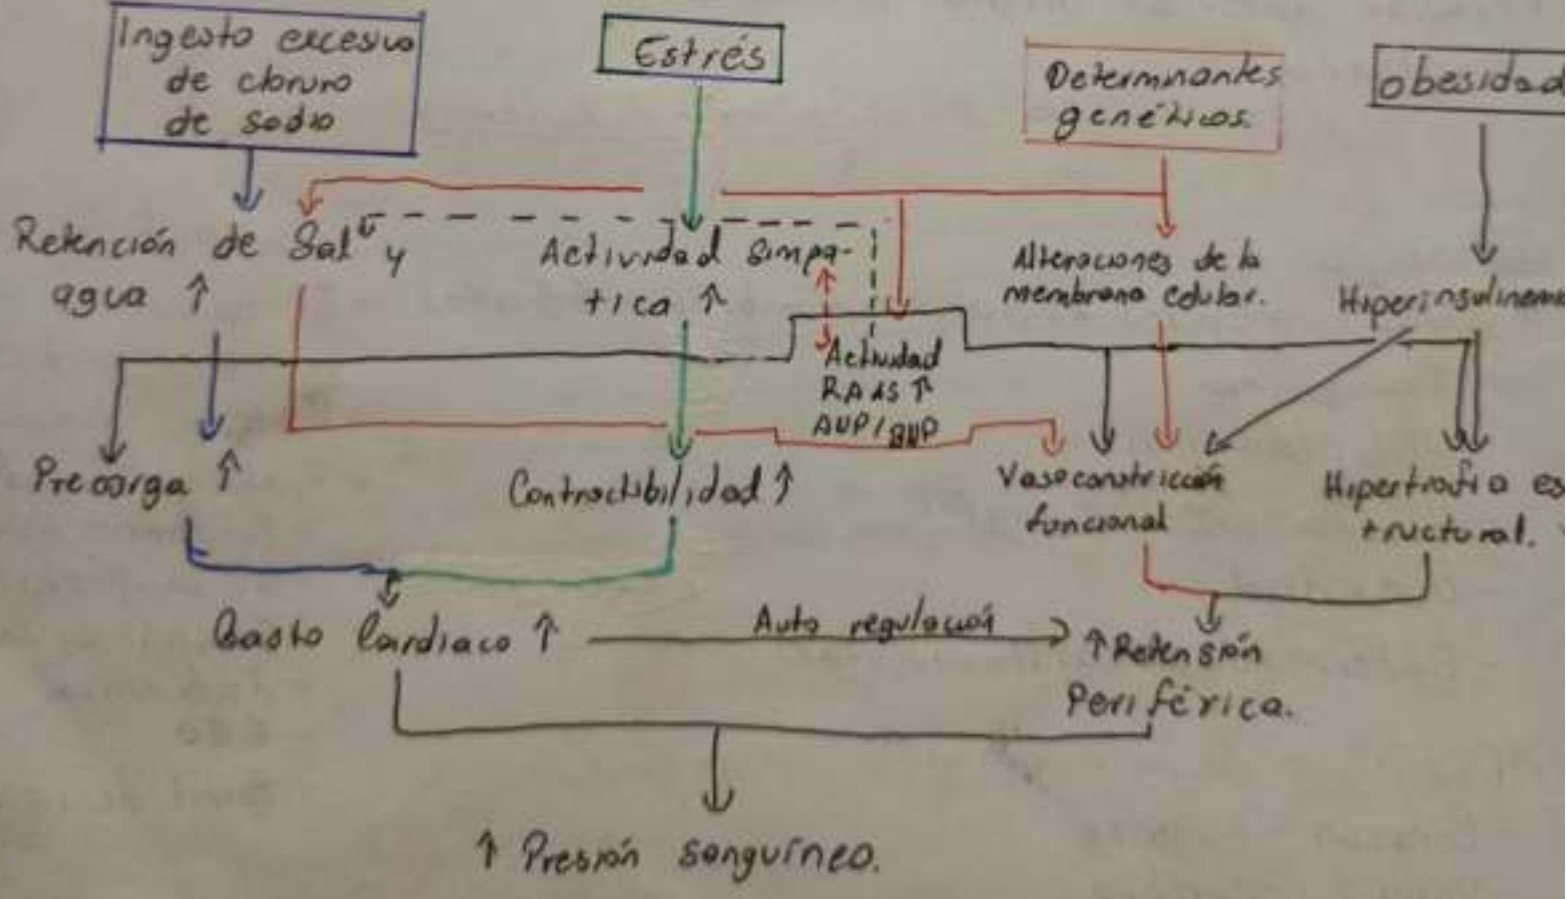 Ingesta excesiva
de cloruro
de sodio
Estrés
Determinantes
genéticos.
obesidad
Retención de Sal y
agua ↑
Actividad Simpa-
tica ↑
Alteraciones de la
membrana celular.
Hiperinsulinemia
Actividad
RAAS ↑
ANP/BNP
Precarga ↑
Contractibilidad ↑
Vasoconstricción
funcional
Hipertrofia es
tructural.
Gasto Cardiaco ↑
Auto regulación
↑ Retensión
Periférica.
↑ Presión sanguíneo.